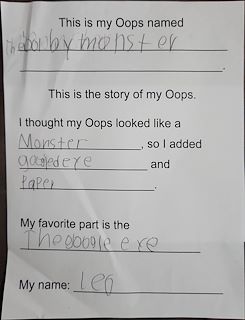 This is my Oops named
The boriby monster
This is the story of my Oops.
I thought my Oops looked like a
Monster, so I added
googledeye and
Paper.
My favorite part is the
The google eye
My name: Leo